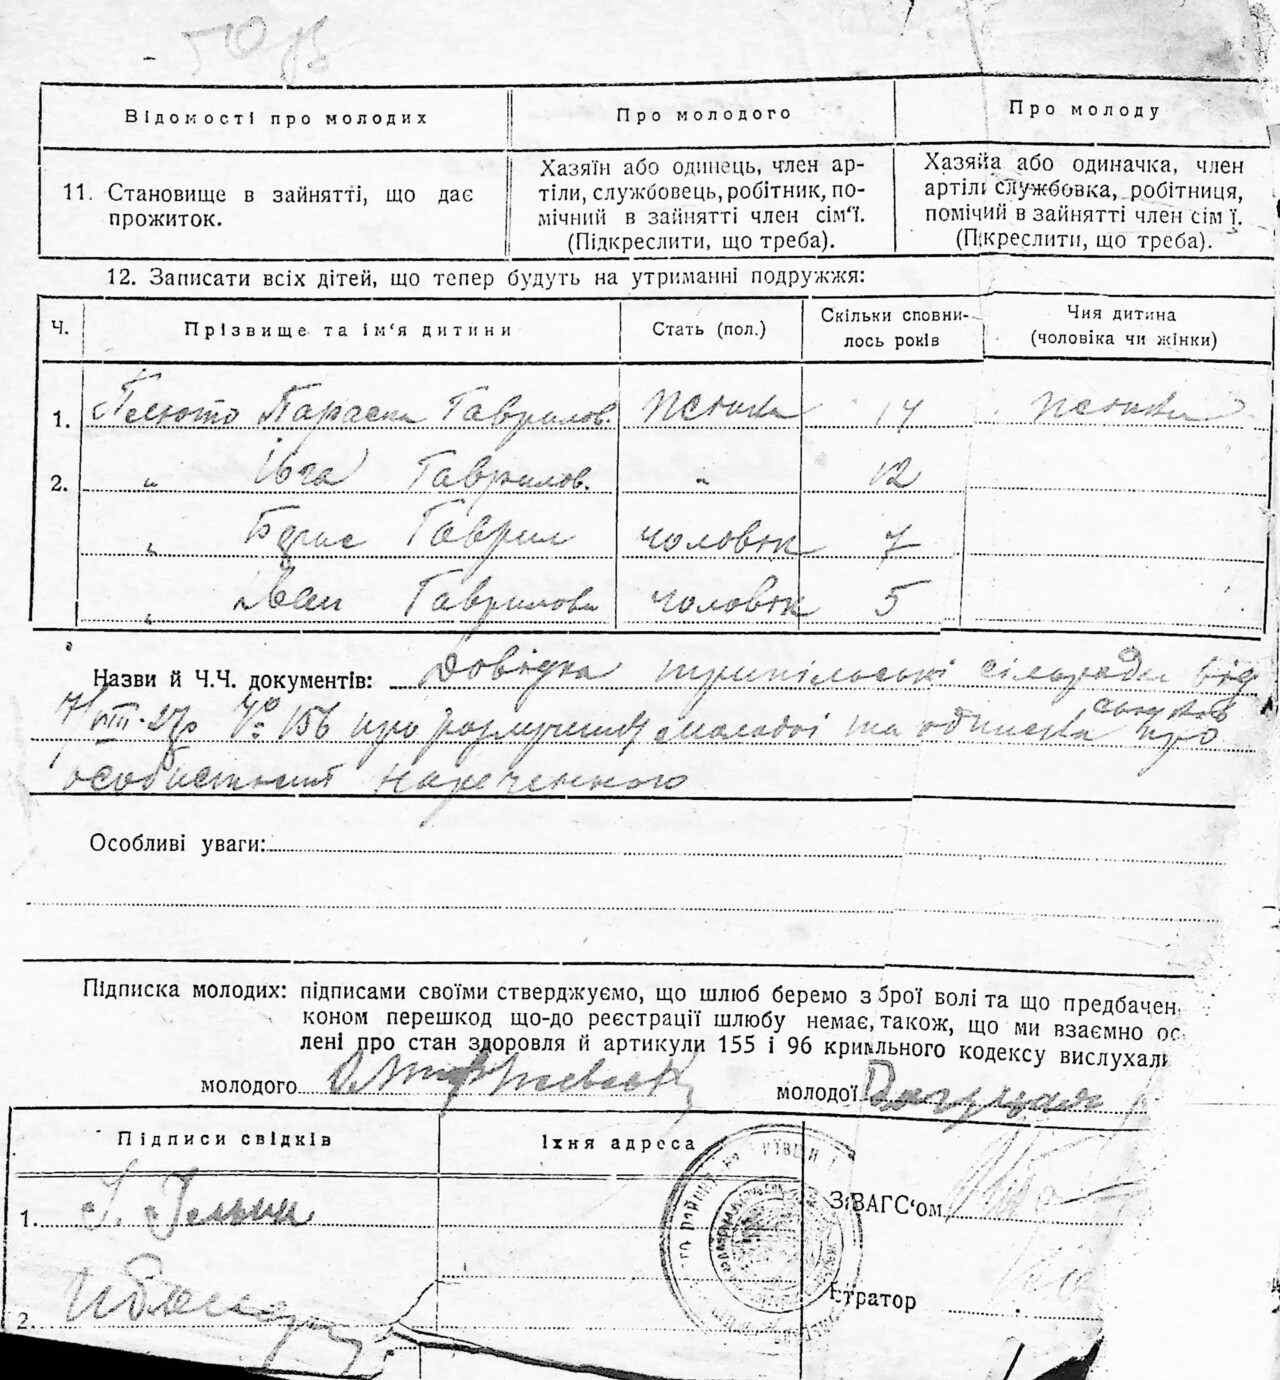 Відомості про молодих
Про молодого
Про молоду
11. Становище в зайнятті, що дає
прожиток.
Хазяїн або одинець, член ар-
тіли, службовець, робітник, по-
мічний в зайнятті член сім'ї.
(Підкреслити, що треба).
Хазяйа або одиначка, член
артілі службовка, робітниця,
помічий в зайнятті член сім ї.
(Підкреслити, що треба).
12. Записати всіх дітей, що тепер будуть на утриманні подружжя:
Ч.
Прізвище та ім'я дитини
Стать (пол.)
Скільки сповни-
лось років
Чия дитина
(чоловіка чи жінки)
1. Параска Гаврилов. жінка 14 жінки
2. " Івга Гаврилов. " 12
" Борис Гаврил чоловік 7
" Іван Гаврилови чоловік 5
Назви й Ч.Ч. документів: Довідка трипільської сільради від
7/VIII-27р № 156 про молодої та одписка про
нареченного
Особливі уваги:
Підписка молодих: підписами своїми стверджуємо, що шлюб беремо з брої волі та що предбачен
коном перешкод що-до реєстрації шлюбу немає, також, що ми взаємно ос
лені про стан здоровля й артикули 155 і 96 кримльного кодексу вислухалі
молодого
молодої
Підписи свідків
Їхня адреса
1.
2.
ЗАГС'ом
тратор